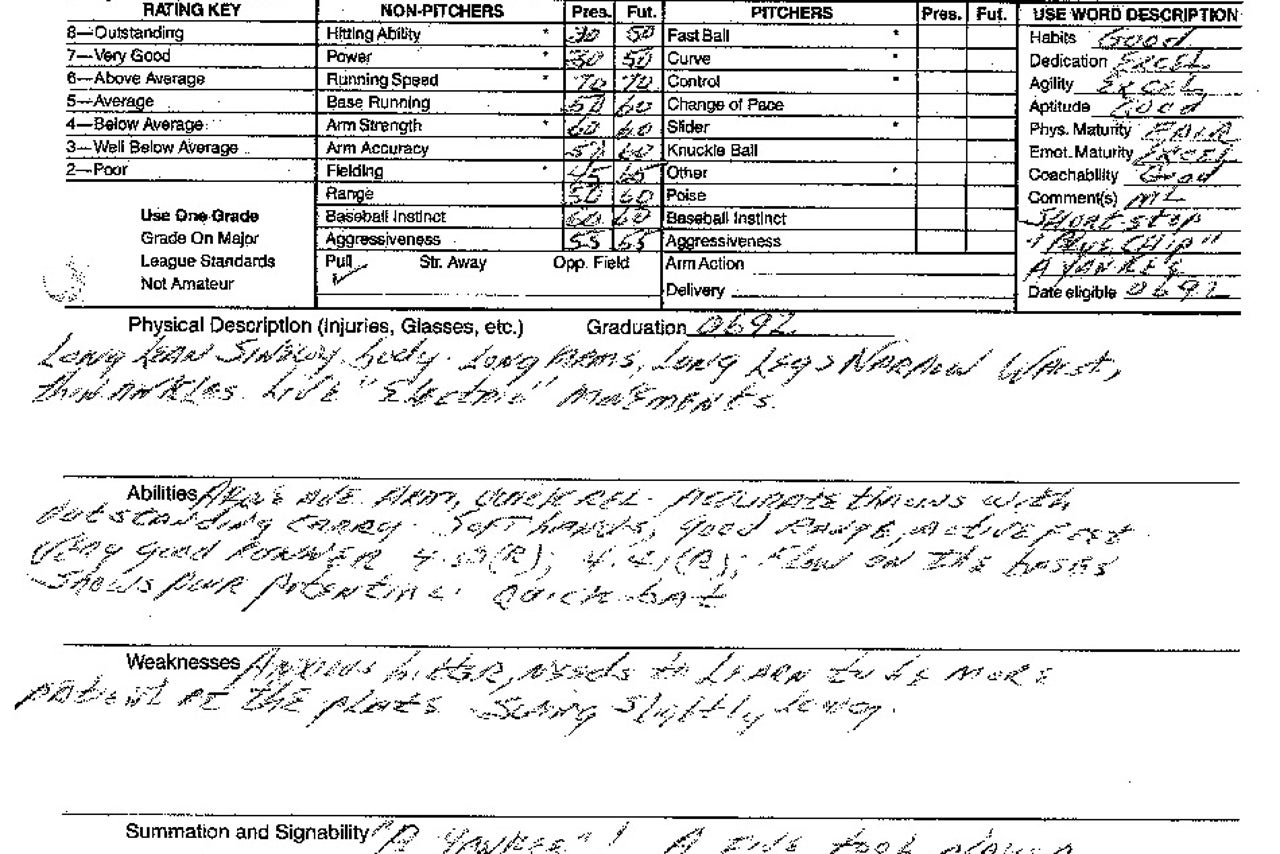 RATING KEY
8—Outstanding
7—Very Good
6—Above Average
5—Average
4—Below Average
3—Well Below Average
2—Poor
Use One Grade
Grade On Major
League Standards
Not Amateur
NON-PITCHERS Pres. Fut.
Hitting Ability * 30 50
Power * 30 50
Running Speed * 70 70
Base Running 50 60
Arm Strength * 60 60
Arm Accuracy 50 60
Fielding * 45 65
Range 50 60
Baseball Instinct 60 60
Aggressiveness 55 65
Pull ✓ Str. Away Opp. Field
PITCHERS Pres. Fut.
Fast Ball *
Curve *
Control *
Change of Pace
Slider *
Knuckle Ball
Other *
Poise
Baseball Instinct
Aggressiveness
Arm Action
Delivery
USE WORD DESCRIPTION
Habits Good
Dedication EXCEL
Agility EXCEL
Aptitude Good
Phys. Maturity FAIR
Emot. Maturity EXCEL
Coachability Good
Comment(s) ML
SHORTSTOP
"BLUE CHIP"
A YANKEE
Date eligible 0692
Physical Description (Injuries, Glasses, etc.) Graduation 0692
Long LEAN SINEWY body. Long ARMS, Long Legs NARROW WAIST,
thin ANKLES. LIVE "Electric" MOVEMENTS.
Abilities ABOVE AVE. ARM, QUICK REL. ACCURATE throws with
OUTSTANDING CARRY. Soft hands, good RANGE, ACTIVE FEET.
Very good RUNNER (R); (R); Flow ON THE bases
Shows PWR potential. Quick bat
Weaknesses Anxious hitter, needs to LEARN to be MORE
patient AT THE plate. Swing Slightly Long.
Summation and Signability "A YANKEE"! A FIVE tool player